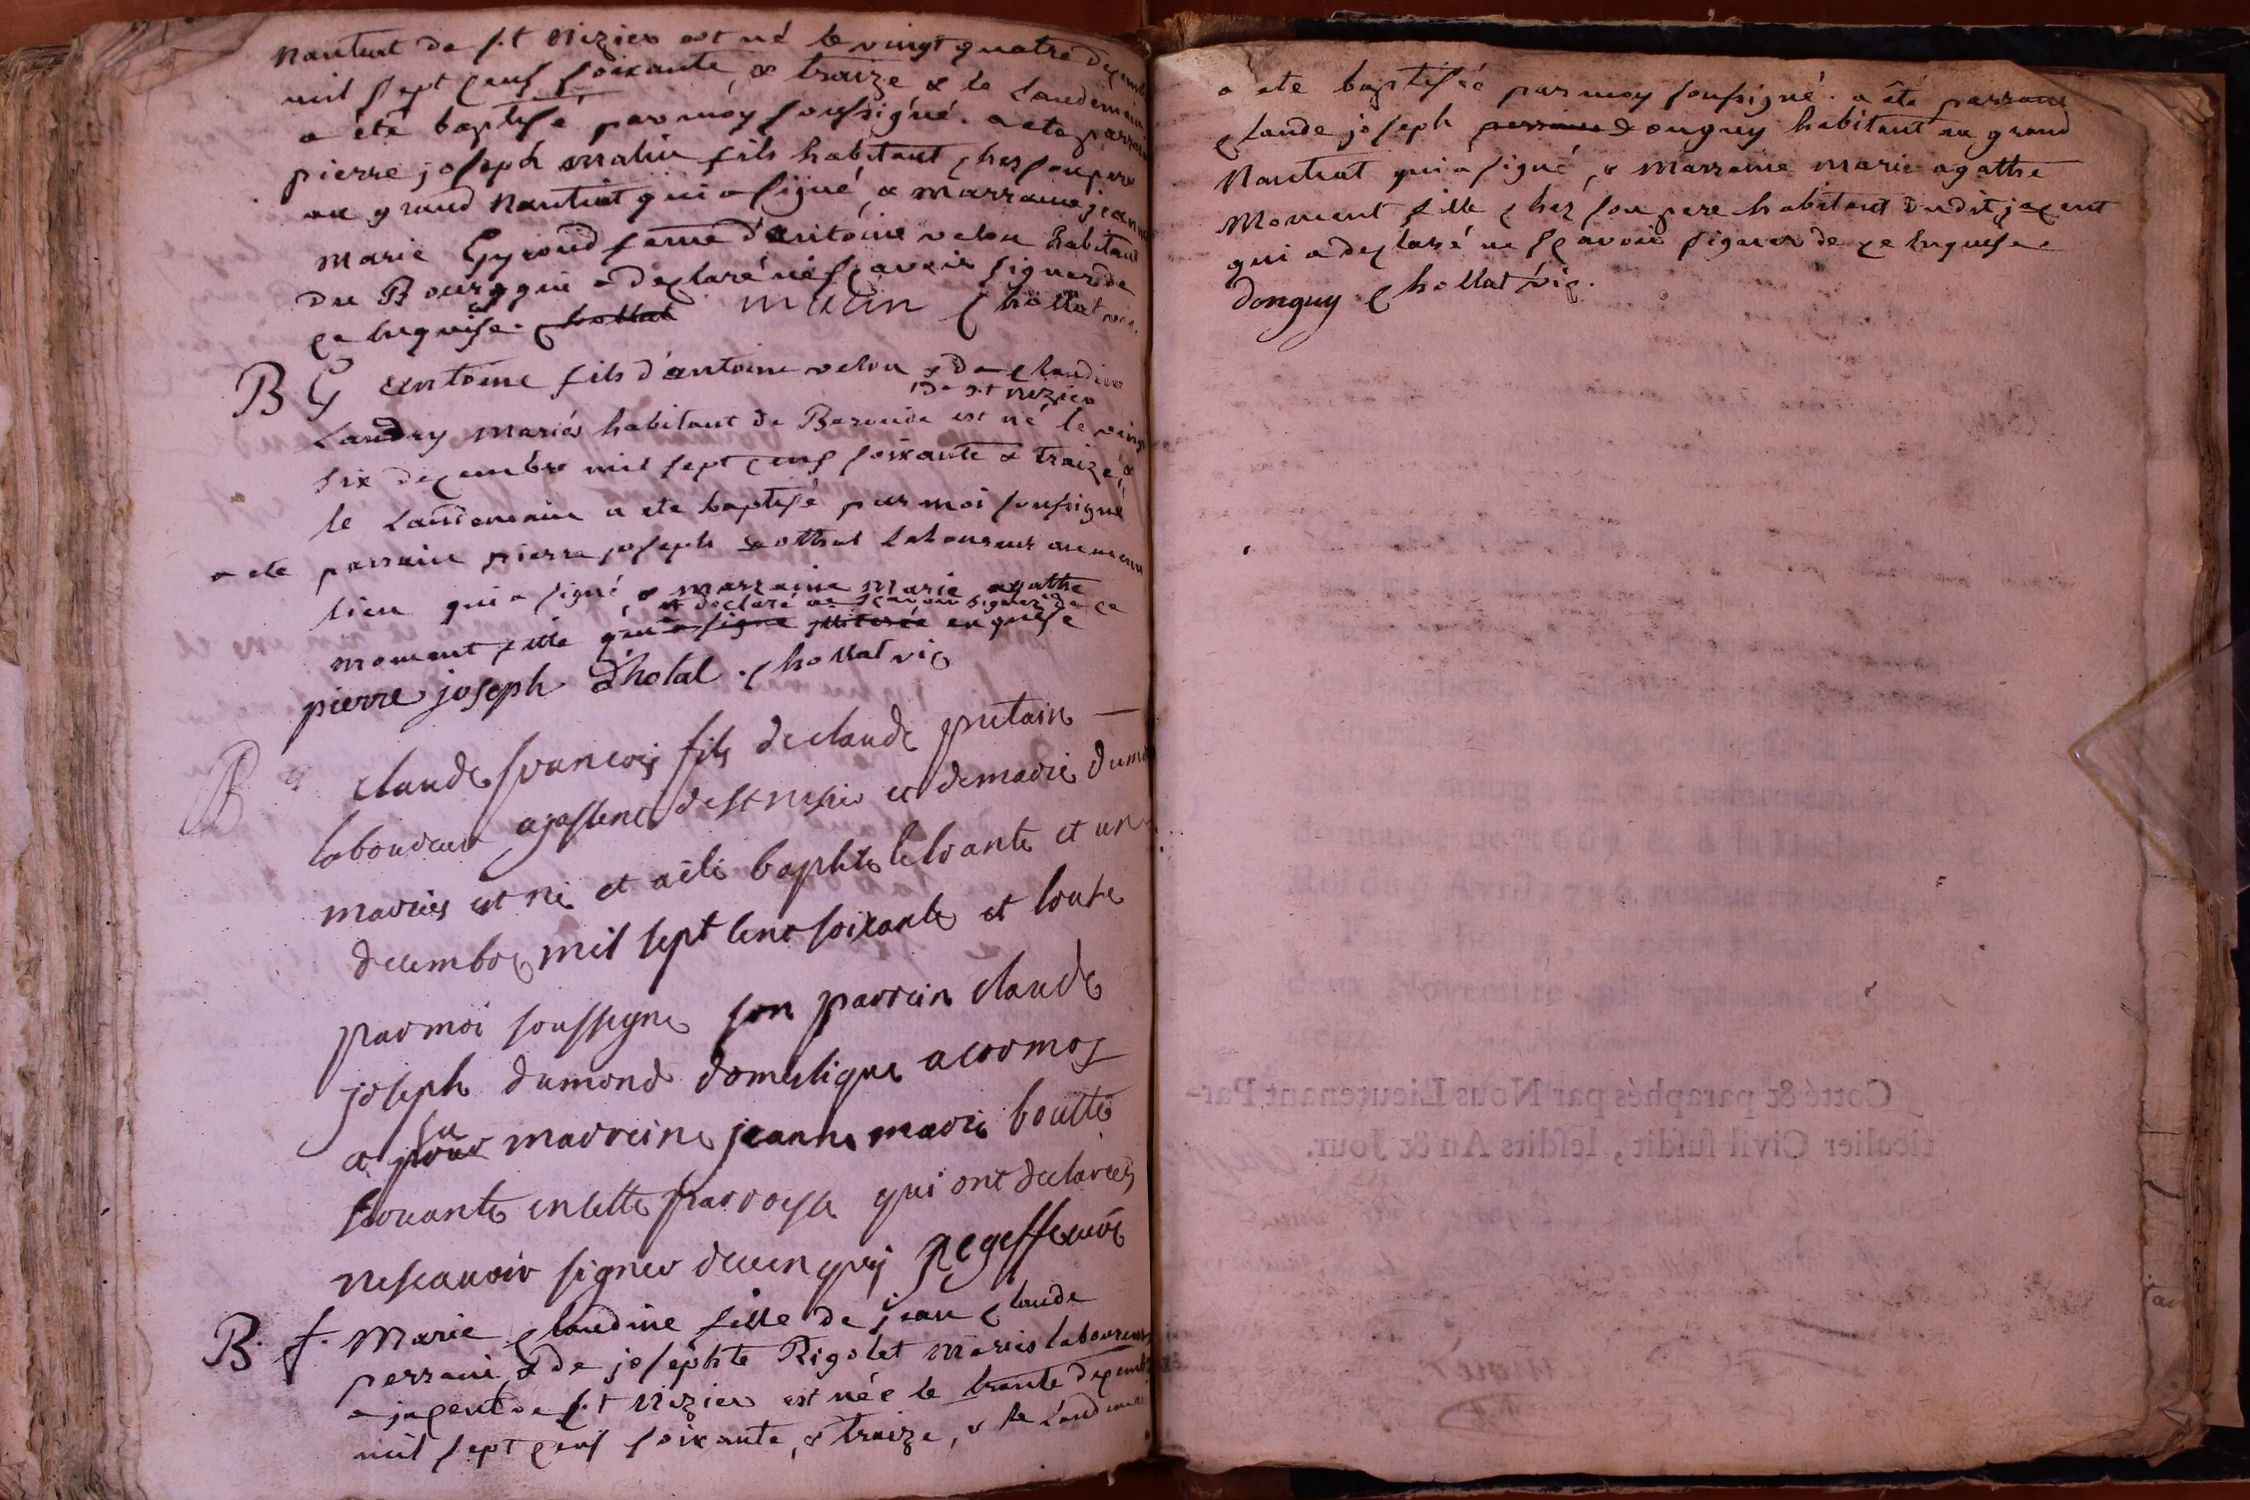 Nantuat de s.t Nizier est né le vingt quatre
mil sept cens soixante, & traize & le Landemain
a été baptisé par moy soussigné. a ete parrain
pierre joseph malin fils habitant chez son pere
au grand Nantuat qui a signé, & marraine jeanne
marie Gyroud feme d'antoine velon habitant
du Bourg qui a declaré ne scavoir signer de
ce enquise. chollat malin chollat vic.
B G antoine fils d'antoine velon & de claudine
de s.t nizier
Landry mariés habitant de est né le vingt
six decembre mil sept cens soixante & traize, &
le Landemain a ete baptisé par moi soussigné
a ete parrain pierre joseph Laboureur au meme
lieu qui a signé, & marraine Marie agathe
et declaré ne scavoir signer de ce
moment fille qui a signé enquise
pierre joseph Dholat. chollat vic
B G claude francois fils de claude putain
laboureur de st nisier et de marie
mariés est né et a été baptisé le trante et un
decembre mil sept cent soixante et traise
par moi soussigne son parrein claude
joseph dumond domestique a cormoz
sa
a pour marreine jeanne marie
servante en cette parroisse qui ont declarés
ne scavoir signer de ce enquis
B. f. Marie claudine fille de jean claude
perrain & de josephte Rigolet mariés laboureurs
a jacent de s.t Nizier est née le trante decembre
mil sept cens soixante, & traize, & le Landemain
a ete baptisée par moy soussigné. a été parrain
claude joseph donguy habitant au grand
Nantuat qui a signé, & marraine marie agathe
Moment fille chez son pere habitant dudit jacent
qui a declaré ne scavoir signer de ce enquise.
donguy chollat vic.
Cotté & paraphés par Nous Lieutenant Par-
ticulier Civil susdit, lesdits An & Jour.